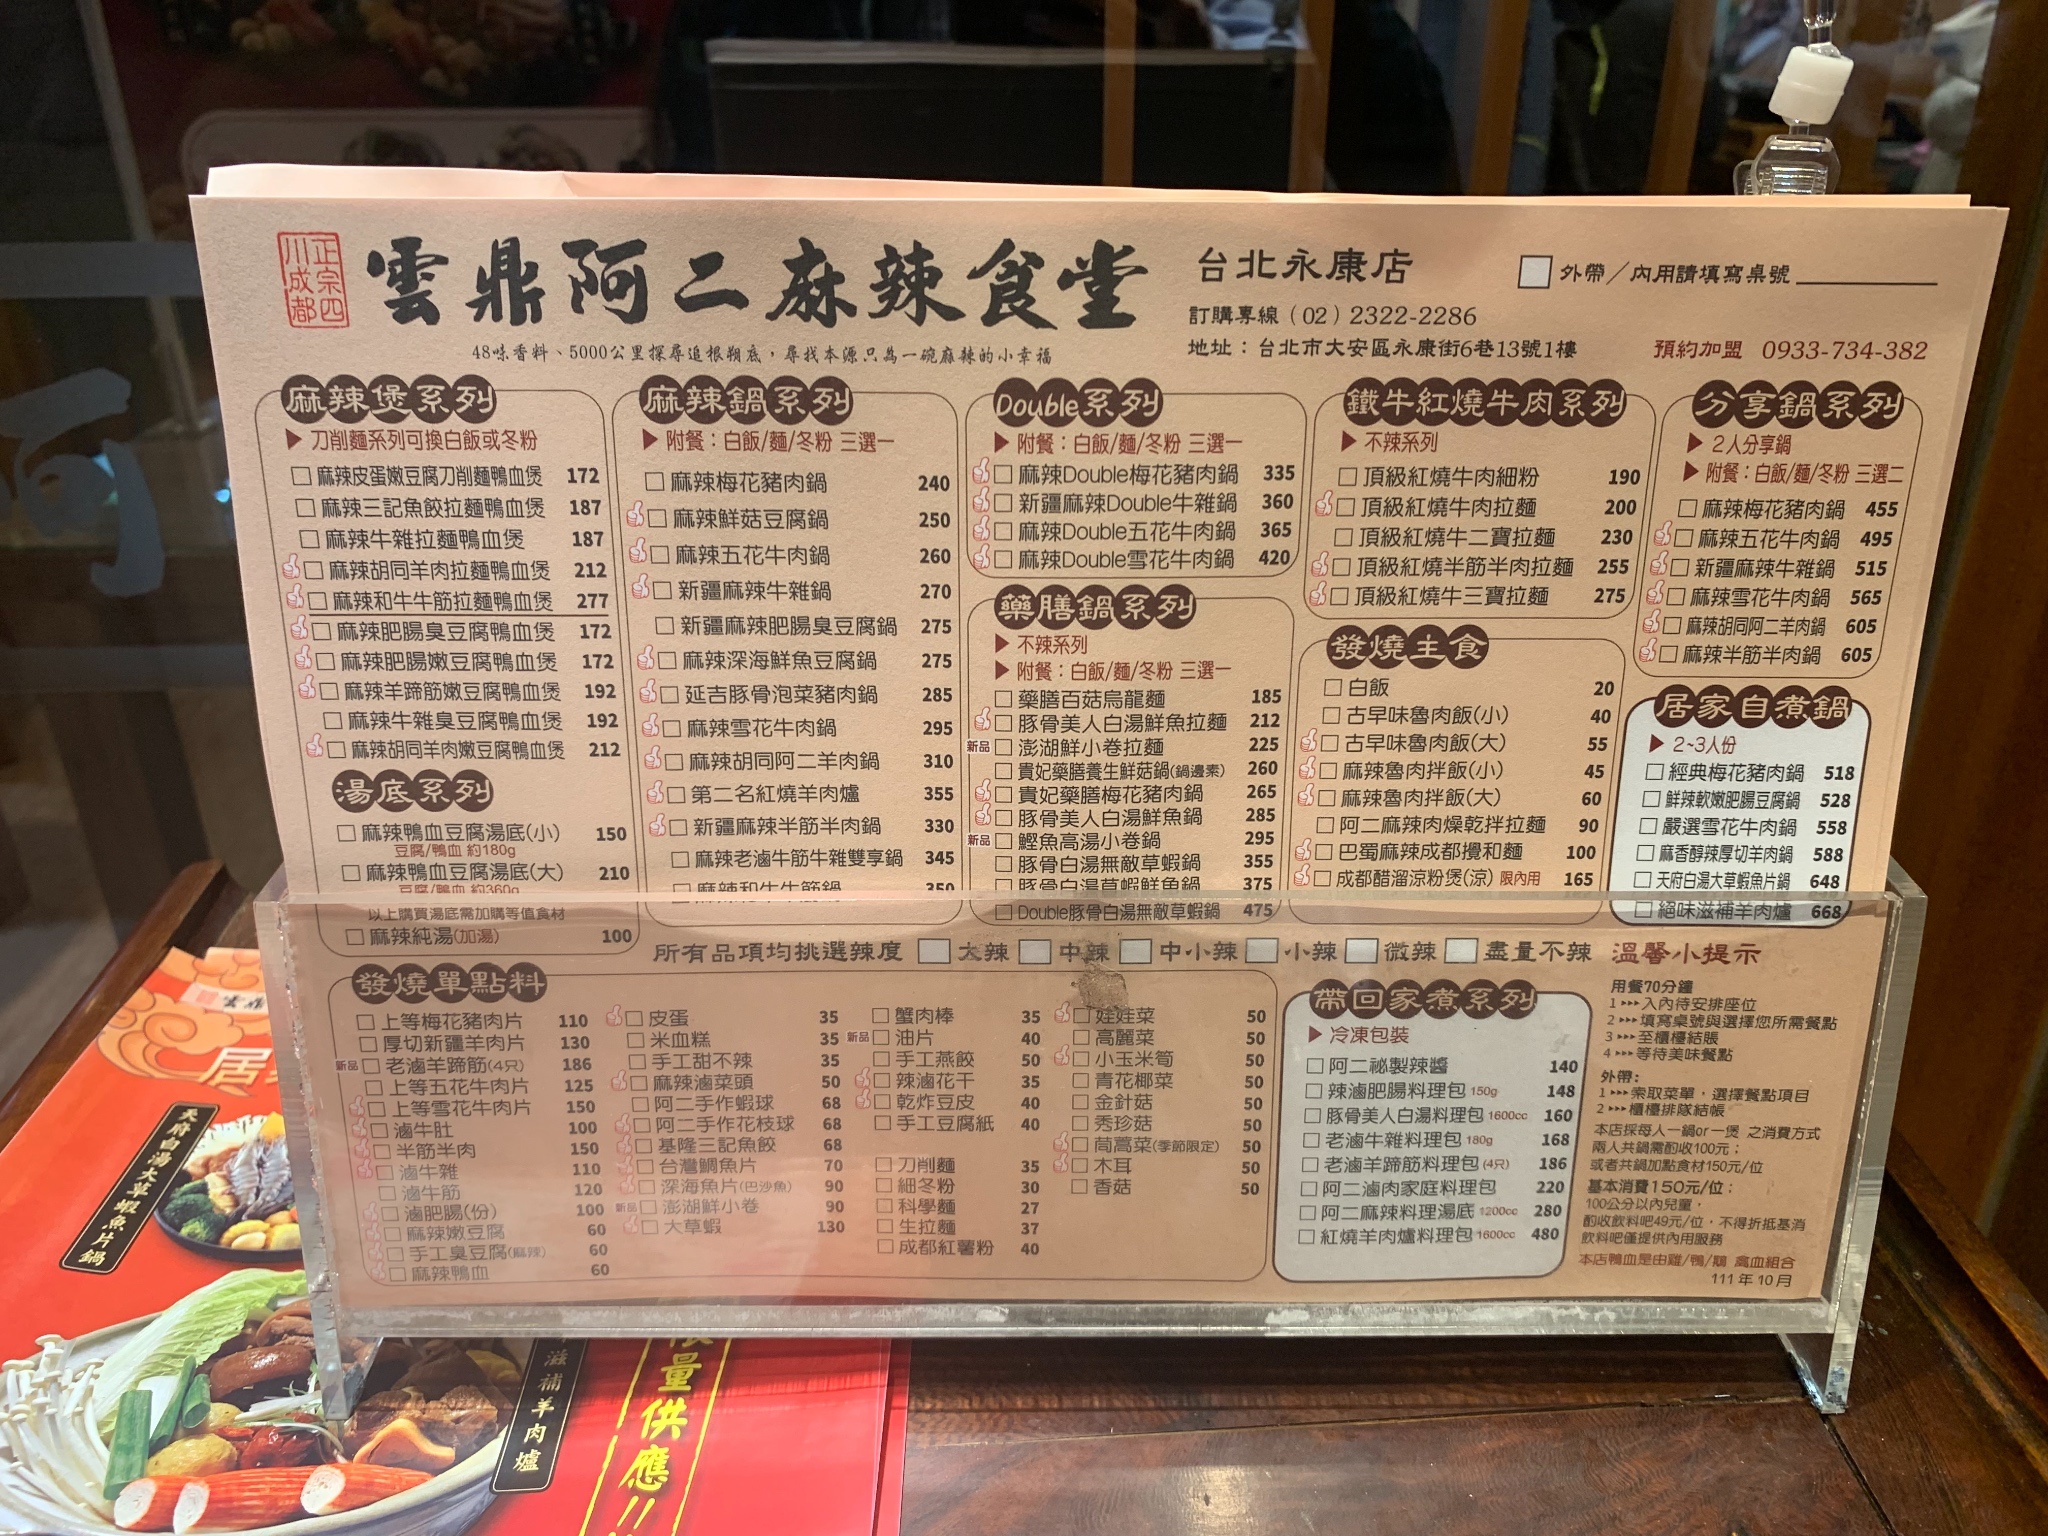 正宗四川成都
雲鼎阿二麻辣食堂
台北永康店
外帶／內用請填寫桌號
訂購專線（02）2322-2286
48味香料、5000公里探尋追根朔底，尋找本源只為一碗麻辣的小幸福
地址：台北市大安區永康街6巷13號1樓
預約加盟 0933-734-382
麻辣煲系列
▶ 刀削麵系列可換白飯或冬粉
麻辣皮蛋嫩豆腐刀削麵鴨血煲 172
麻辣三記魚餃拉麵鴨血煲 187
麻辣牛雜拉麵鴨血煲 187
麻辣胡同羊肉拉麵鴨血煲 212
麻辣和牛牛筋拉麵鴨血煲 277
麻辣肥腸臭豆腐鴨血煲 172
麻辣肥腸嫩豆腐鴨血煲 172
麻辣羊蹄筋嫩豆腐鴨血煲 192
麻辣牛雜臭豆腐鴨血煲 192
麻辣胡同羊肉嫩豆腐鴨血煲 212
湯底系列
麻辣鴨血豆腐湯底(小) 150
豆腐/鴨血 約180g
麻辣鴨血豆腐湯底(大) 210
豆腐/鴨血 約360g
以上購買湯底需加購等值食材
麻辣純湯(加湯) 100
麻辣鍋系列
▶ 附餐：白飯/麵/冬粉 三選一
麻辣梅花豬肉鍋 240
麻辣鮮菇豆腐鍋 250
麻辣五花牛肉鍋 260
新疆麻辣牛雜鍋 270
新疆麻辣肥腸臭豆腐鍋 275
麻辣深海鮮魚豆腐鍋 275
延吉豚骨泡菜豬肉鍋 285
麻辣雪花牛肉鍋 295
麻辣胡同阿二羊肉鍋 310
第二名紅燒羊肉爐 355
新疆麻辣半筋半肉鍋 330
麻辣老滷牛筋牛雜雙享鍋 345
麻辣和牛牛筋鍋 350
Double系列
▶ 附餐：白飯/麵/冬粉 三選一
麻辣Double梅花豬肉鍋 335
新疆麻辣Double牛雜鍋 360
麻辣Double五花牛肉鍋 365
麻辣Double雪花牛肉鍋 420
藥膳鍋系列
▶ 不辣系列
▶ 附餐：白飯/麵/冬粉 三選一
藥膳百菇烏龍麵 185
豚骨美人白湯鮮魚拉麵 212
新品 澎湖鮮小卷拉麵 225
貴妃藥膳養生鮮菇鍋(鍋邊素) 260
貴妃藥膳梅花豬肉鍋 265
豚骨美人白湯鮮魚鍋 285
新品 鰹魚高湯小卷鍋 295
豚骨白湯無敵草蝦鍋 355
豚骨白湯草蝦鮮魚鍋 375
Double豚骨白湯無敵草蝦鍋 475
鐵牛紅燒牛肉系列
▶ 不辣系列
頂級紅燒牛肉細粉 190
頂級紅燒牛肉拉麵 200
頂級紅燒牛二寶拉麵 230
頂級紅燒半筋半肉拉麵 255
頂級紅燒牛三寶拉麵 275
發燒主食
白飯 20
古早味魯肉飯(小) 40
古早味魯肉飯(大) 55
麻辣魯肉拌飯(小) 45
麻辣魯肉拌飯(大) 60
阿二麻辣肉燥乾拌拉麵 90
巴蜀麻辣成都攪和麵 100
成都醋溜涼粉煲(涼) 限內用 165
分享鍋系列
▶ 2人分享鍋
▶ 附餐：白飯/麵/冬粉 三選二
麻辣梅花豬肉鍋 455
麻辣五花牛肉鍋 495
新疆麻辣牛雜鍋 515
麻辣雪花牛肉鍋 565
麻辣胡同阿二羊肉鍋 605
麻辣半筋半肉鍋 605
居家自煮鍋
▶ 2~3人份
經典梅花豬肉鍋 518
鮮辣軟嫩肥腸豆腐鍋 528
嚴選雪花牛肉鍋 558
麻香醇辣厚切羊肉鍋 588
天府白湯大草蝦魚片鍋 648
絕味滋補羊肉爐 668
所有品項均挑選辣度 大辣 中辣 中小辣 小辣 微辣 盡量不辣
發燒單點料
上等梅花豬肉片 110
厚切新疆羊肉片 130
新品 老滷羊蹄筋(4只) 186
上等五花牛肉片 125
上等雪花牛肉片 150
滷牛肚 100
半筋半肉 150
滷牛雜 110
滷牛筋 120
滷肥腸(份) 100
麻辣嫩豆腐 60
手工臭豆腐(麻辣) 60
麻辣鴨血 60
皮蛋 35
米血糕 35
手工甜不辣 35
麻辣滷菜頭 50
阿二手作蝦球 68
阿二手作花枝球 68
基隆三記魚餃 68
台灣鯛魚片 70
深海魚片(巴沙魚) 90
新品 澎湖鮮小卷 90
大草蝦 130
蟹肉棒 35
新品 油片 40
手工燕餃 50
辣滷花干 35
乾炸豆皮 40
手工豆腐紙 40
刀削麵 35
細冬粉 30
科學麵 27
生拉麵 37
成都紅薯粉 40
娃娃菜 50
高麗菜 50
小玉米筍 50
青花椰菜 50
金針菇 50
秀珍菇 50
茼蒿菜(季節限定) 50
木耳 50
香菇 50
帶回家煮系列
▶ 冷凍包裝
阿二祕製辣醬 140
辣滷肥腸料理包 150g 148
豚骨美人白湯料理包 1600cc 160
老滷牛雜料理包 180g 168
老滷羊蹄筋料理包 (4只) 186
阿二滷肉家庭料理包 220
阿二麻辣料理湯底 1200cc 280
紅燒羊肉爐料理包 1600cc 480
溫馨小提示
用餐70分鐘
1 ▸▸▸ 入內待安排座位
2 ▸▸▸ 填寫桌號與選擇您所需餐點
3 ▸▸▸ 至櫃檯結賬
4 ▸▸▸ 等待美味餐點
外帶:
1 ▸▸▸ 索取菜單，選擇餐點項目
2 ▸▸▸ 櫃檯排隊結帳
本店採每人一鍋or一煲 之消費方式
兩人共鍋需酌收100元；
或者共鍋加點食材150元/位
基本消費150元/位；
100公分以內兒童，
酌收飲料吧49元/位，不得折抵基消
飲料吧僅提供內用服務
本店鴨血是由雞/鴨/鵝 禽血組合
111 年 10 月
居
天府白湯大草蝦魚片鍋
滋補羊肉爐
限量供應!!